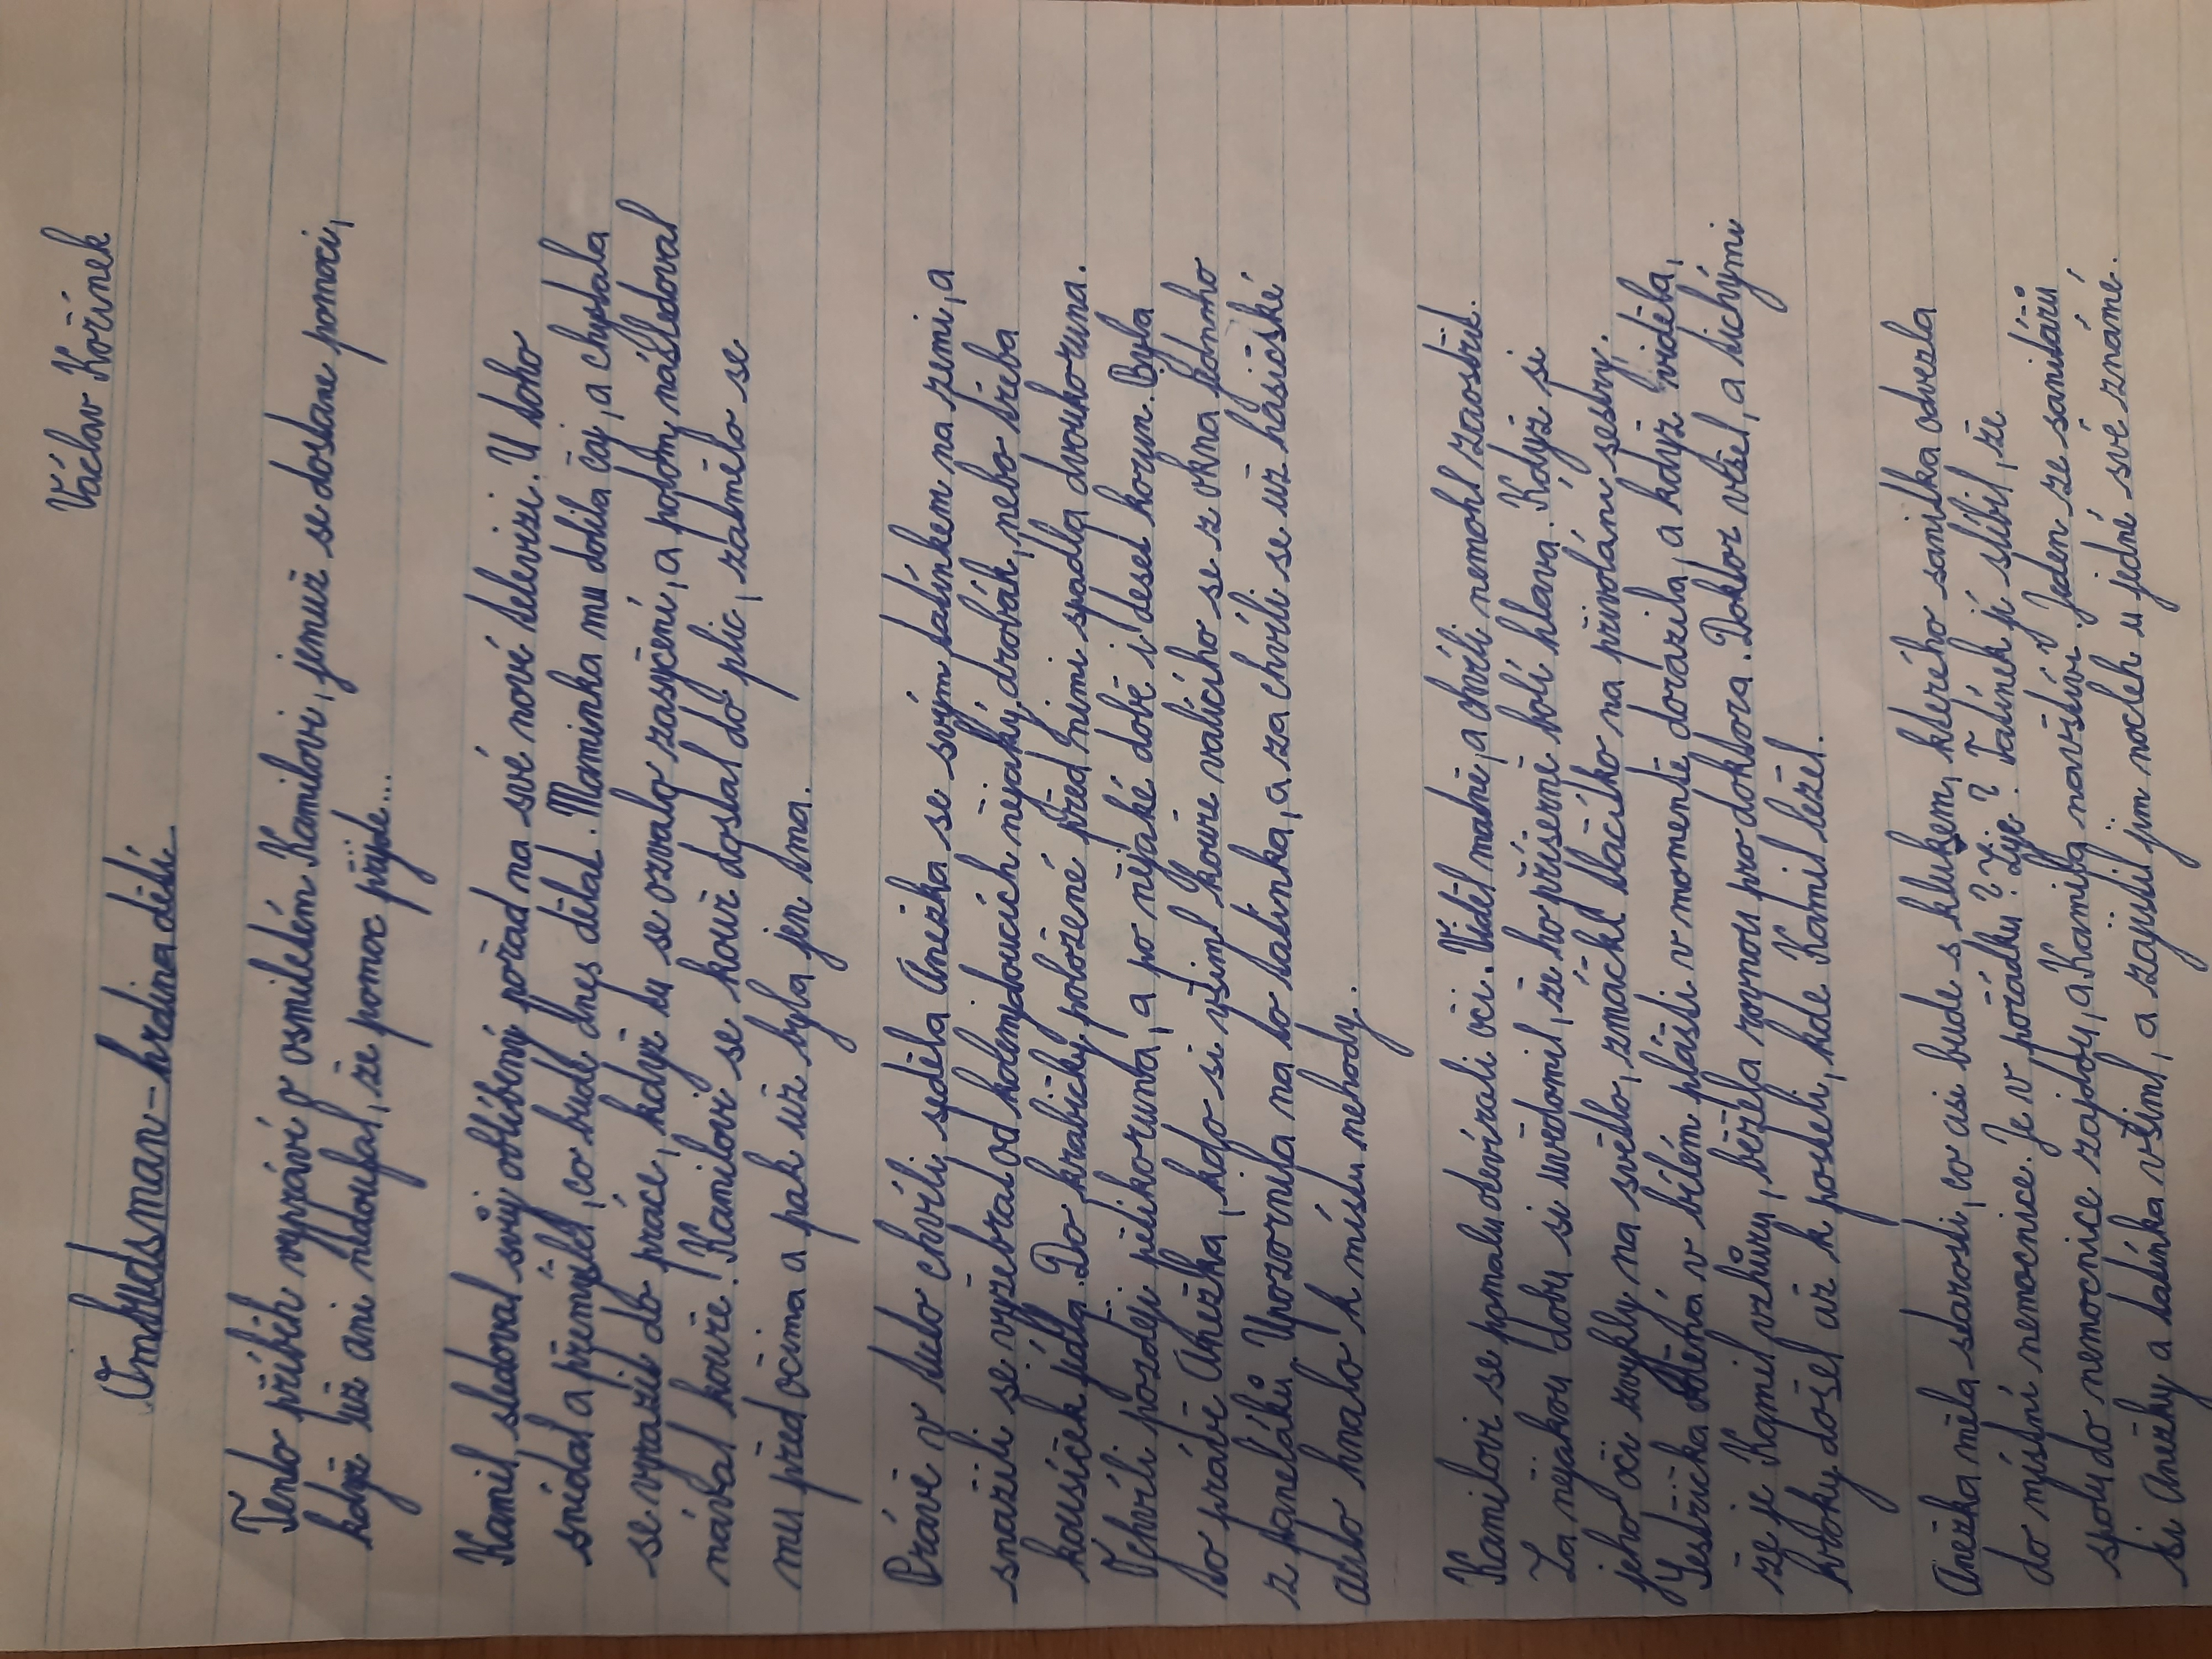 Václav Kořínek
Ombudsman - hrdina dětí
Tento příběh vypráví o osmiletém Kamilovi, jemuž se dostane pomoci,
když už ani nedoufal, že pomoc přijde...
Kamil sledoval svůj oblíbený pořad na své nové televizi. U toho
snídal a přemýšlel, co bude dnes dělat. Maminka mu dolila čaj, a chystala
se vyrazit do práce, když tu se ozvalo zasyčení, a potom následoval
nával kouře! Kamilovi se kouř dostal do plic, zatmělo se
mu před očima a pak už byla jen tma.
Právě v tuto chvíli seděla Anežka se svým tatínkem na zemi, a
snažili se vyžebrat od kolemjdoucích nějaký drobák, nebo třeba
kousíček jídla. Do krabičky položené před nimi spadla dvoukoruna.
O chvíli později pětikoruna, a po nějaké době i deset korun. Byla
to právě Anežka, kdo si všiml kouře valícího se z okna jednoho
z paneláků. Upozornila na to tatínka, a za chvíli se už hasičské
auto hnalo k místu nehody.
Kamilovi se pomalu otevírali oči. Viděl matně, a chvíli nemohl zaostřit.
Za nějakou dobu si uvědomil, že ho příšerně bolí hlava. Když si
jeho oči zvykly na světlo, zmáčkl tlačítko na přivolání sestry.
Sestřička oděná v bílém plášti v momentě dorazila, a když viděla,
že je Kamil vzhůru, běžela rovnou pro doktora. Doktor všel, a tichými
kroky došel až k posteli, kde Kamil ležel.
Anežka měla starosti, co asi bude s klukem, kterého sanitka odvezla
do místní nemocnice. Je v pořádku? Žije? Tatínek jí slíbil, že
spolu do nemocnice zajdou, a Kamila navštíví. Jeden ze sanitářů
si Anežky a tatínka všiml, a zajistil jim nocleh u jedné své známé.